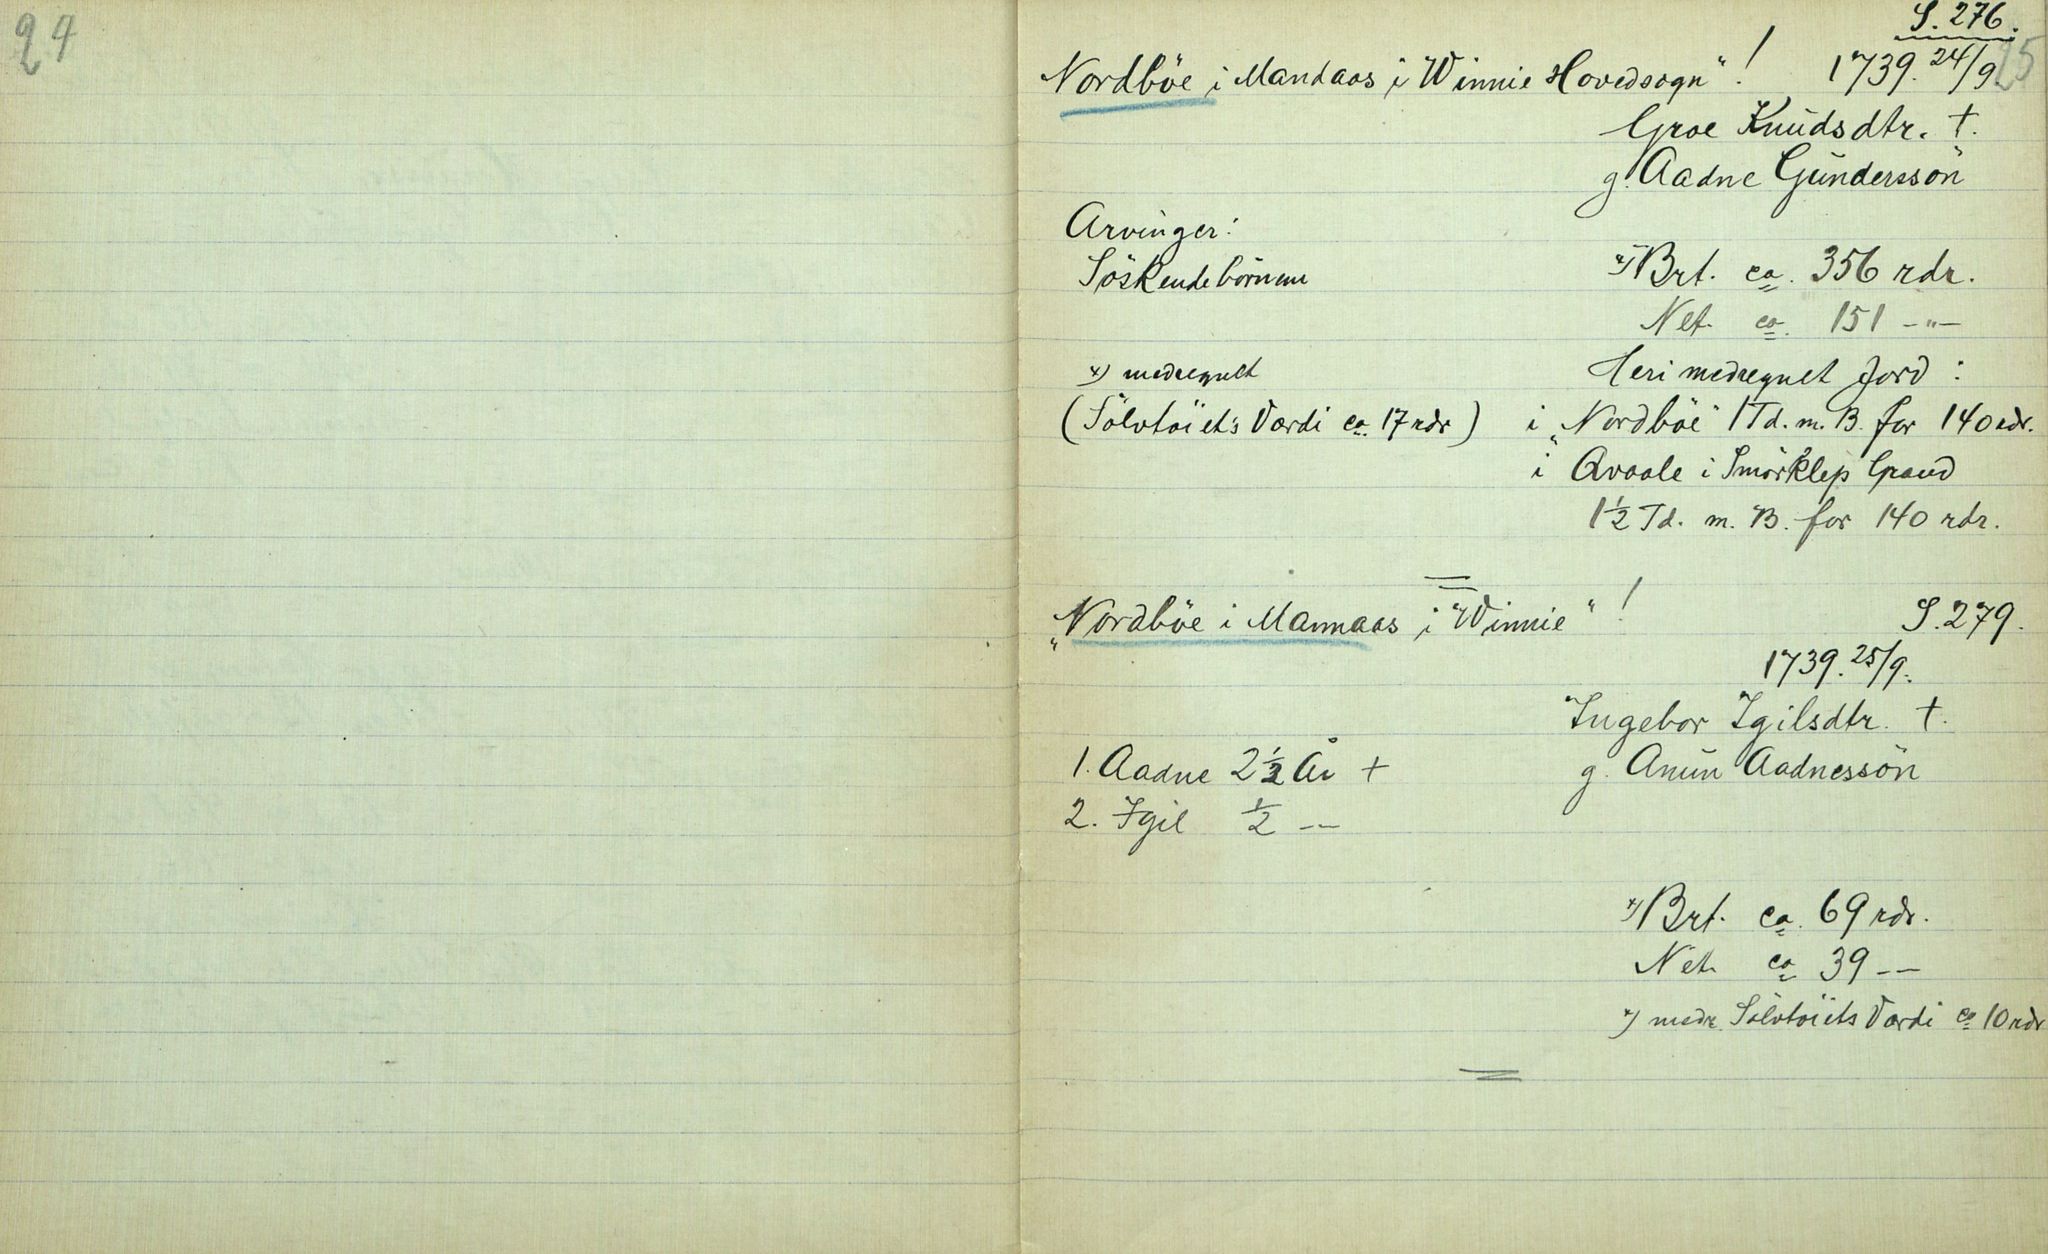 24
S. 276.
25
Nordböe i Mandaas i "Winnie Hovedsogn"! 1739. 24/9
Groe Knudsdtr. †.
g. Aadne Gunderssön
Arvinger:
Söskendebörnene
x) Brt. ca. 356 rdr.
Net. ca. 151 -"-
x) medregnet
Heri medregnet Jord :
(Sölvtöiet's Værdi ca. 17 rdr)
i "Nordböe" 1 Td. m. B. for 140 rdr.
i Qvaale i Smörklep Grænd
1½ Td. m. B. for 140 rdr.
"Nordböe i Mannaas i "Winnie" !
S. 279.
1739. 25/9.
Ingebor Igilsdtr. †.
1. Aadne 2½ År +
g. Anun Aadnessön
2. Igil ½ --
x) Brt. ca. 69 rdr.
Net. ca 39 --
x) medr. Sölvtöiets Værdi ca 10 rdr